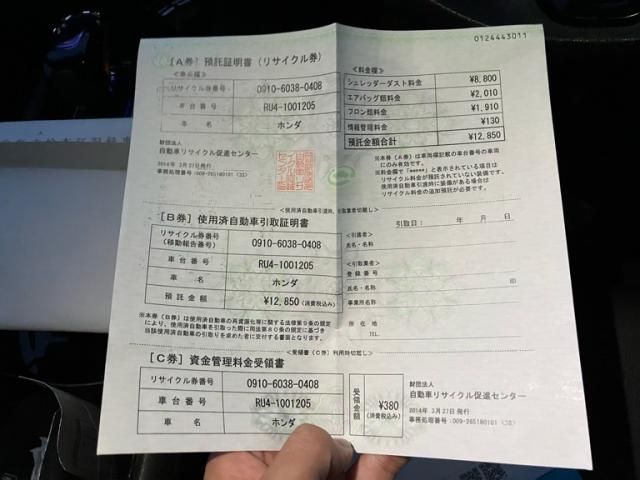 0124443011
[A券] 預託証明書（リサイクル券）
＜車両欄＞
リサイクル券番号 0910-6038-0408
車台番号 RU4-1001205
車名 ホンダ
財団法人
自動車リサイクル促進センター
2014年 3月27日発行
＜料金欄＞
シュレッダーダスト料金 ¥8,800
エアバッグ類料金 ¥2,010
フロン類料金 ¥1,910
情報管理料金 ¥130
預託金額合計 ¥12,850
※本券（A券）は車両欄記載の車台番号の車両
にのみ有効です。
リサイクル料金が預託されていない装備です。
使用済自動車引渡時に装備がある場合は
リサイクル料金の追加預託が必要です。
[B券] 使用済自動車引取証明書
リサイクル券番号
(移動報告番号) 0910-6038-0408
車台番号 RU4-1001205
車名 ホンダ
預託金額 ¥12,850(消費税込み)
※本券（B券）は使用済自動車の再資源化等に関する法律第9条の規定
により、使用済自動車を引取った際に同法第80条の規定に基づき
当該使用済自動車の引取りを求めた者に交付する書面となります。
引取日： 年 月 日
＜引渡者＞
氏名・名称
＜引取業者＞
登録番号
氏名・名称 印
事業所名称
所在地
TEL
＜受領書（C券）利用時切離し＞
[C券] 資金管理料金受領書
リサイクル券番号 0910-6038-0408
車台番号 RU4-1001205
車名 ホンダ
受領金額 ¥380
(消費税込み)
財団法人
自動車リサイクル促進センター
2014年 3月27日 発行